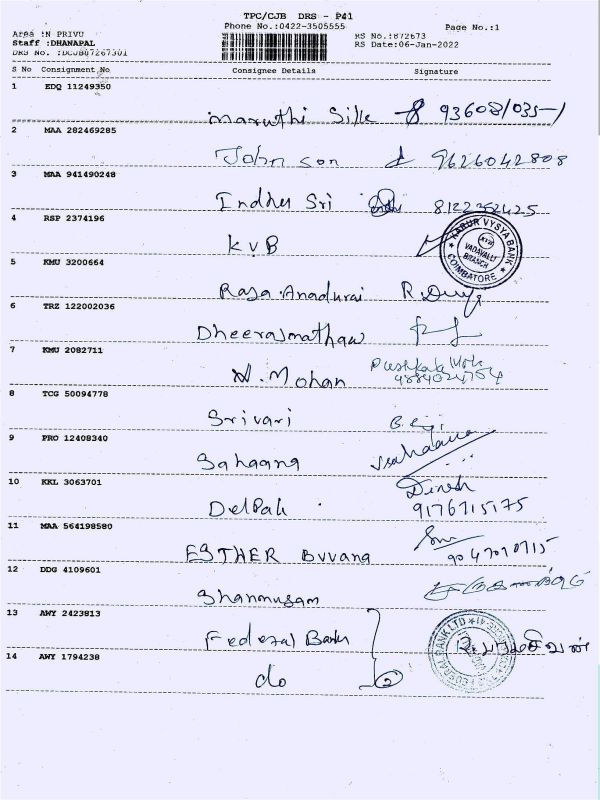 TPC/CJB DRS - P41
Phone No.:0422-3505555
Page No.:1
Area :N PRIVU
Staff :DHANAPAL
DRS No. :DCJB07267301
RS No.:872673
RS Date:06-Jan-2022
S No Consignment No Consignee Details Signature
1 EDQ 11249350
Maruthi Silk
2 MAA 282469285
Johnson 9626042808
3 MAA 941490248
Indhu Sri 8122352425
4 RSP 2374196
KVB
KARUR VYSYA BANK
KVB
VADAVALLI
BRANCH
COIMBATORE
5 KMU 3200664
Raja Anadurai
6 TRZ 122002036
7 KMU 2082711
N. Mohan
8 TCG 50094778
Srivari
9 PRO 12408340
Sahaana
10 KKL 3063701
Dinesh
9176715175
11 MAA 564198580
ESTHER Buvana
12 DDG 4109601
Shanmugam
13 AWY 2423813
Federal Bank
FEDERAL BANK LTD
14 AWY 1794238
do